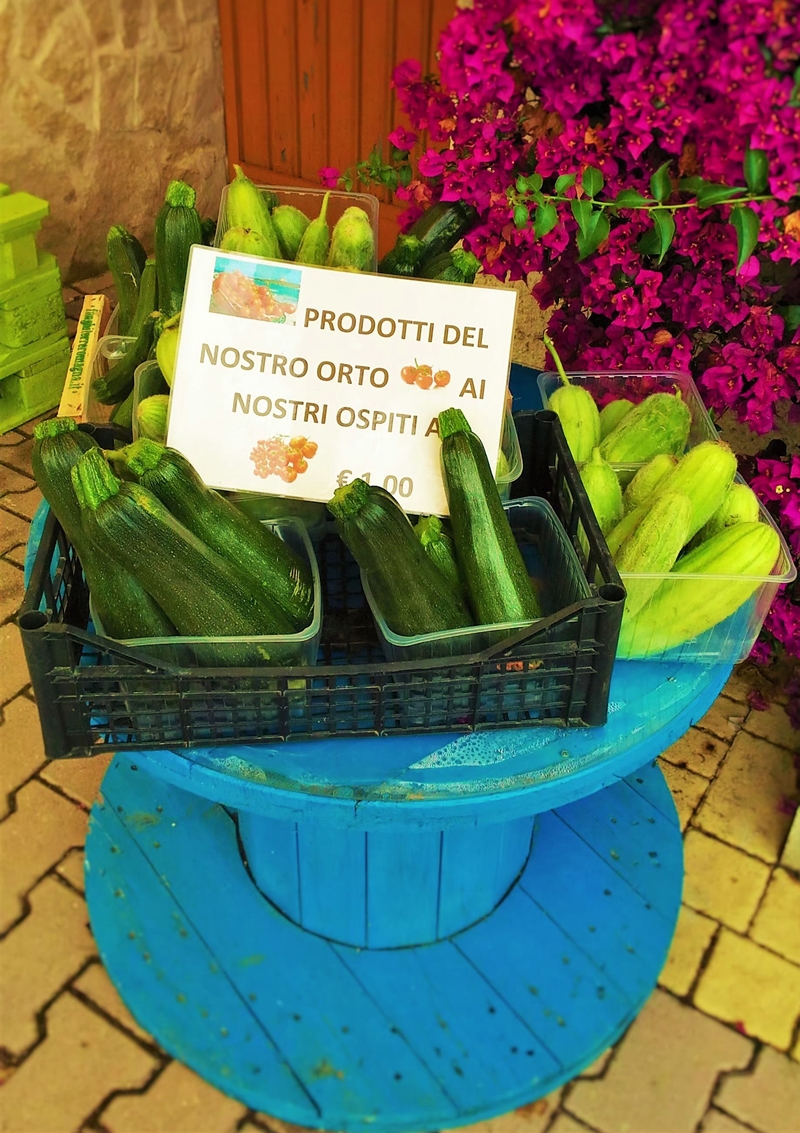 PRODOTTI DEL
NOSTRO ORTO AI
NOSTRI OSPITI A
€ 1,00